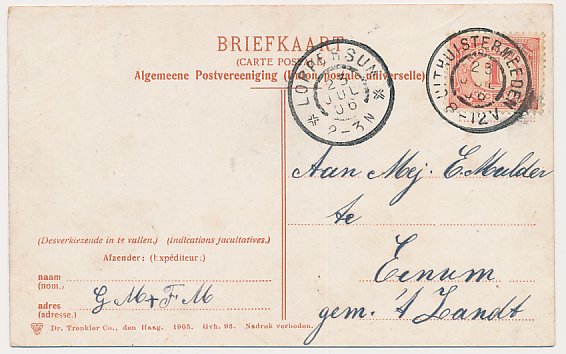 BRIEFKAART
(CARTE POSTALE)
Algemeene Postvereeniging (Union postale universelle)
LOPPERSUM
23
JUL
06
2-3N
UITHUISTERMEEDEN
23
JUL
06
8-12V
1
Aan Mej. E. Mulder
te
Eenum
gem. 't Zandt
(Desverkiezende in te vullen.) (indications facultatives.)
Afzender: (Expéditeur:)
naam
(nom.)
adres
(adresse.)
G M + F M
Dr. Trenkler Co., den Haag. 1905. Grh. 93. Nadruk verboden.